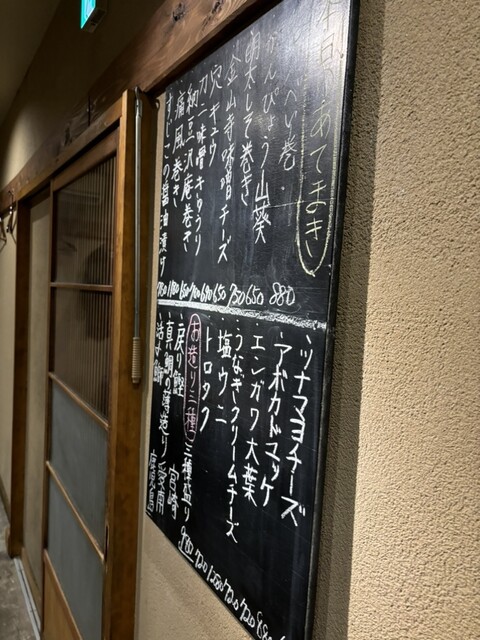 あてまき
べい巻
かんぴょう山葵
明太しそ巻き
金山寺味噌チーズ
穴キュウ
カニ味噌キュウリ
納豆沢庵巻き
痛風巻き
すじこの醤油漬け
880
650
750
650
ツナマヨチーズ
アボカドマッケ
エンガワ大葉
うなぎクリームチーズ
塩ウニ
トロタク
お造り三種
三種盛り
戻り鰹 宮崎
真鯛の薄造り 愛南
鹿児島
720
720